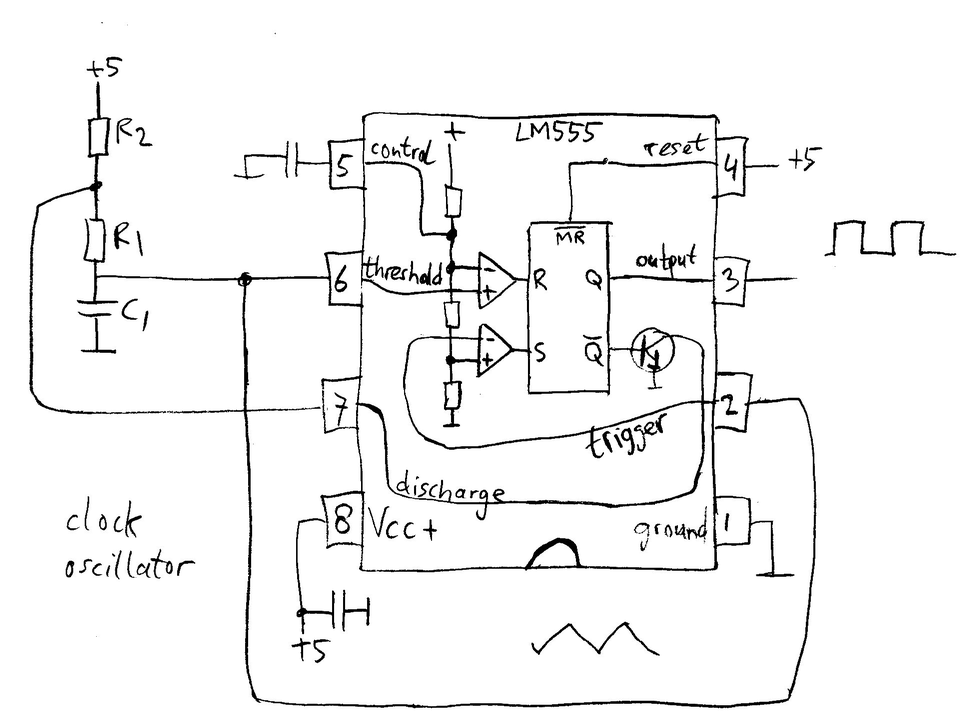 +5
R2
R1
C1
LM555
+
5
control
reset
4
+5
MR
6
threshold
-
+
R
Q
output
3
-
+
S
Q
7
2
trigger
discharge
8
Vcc+
ground
1
clock
oscillator
+5